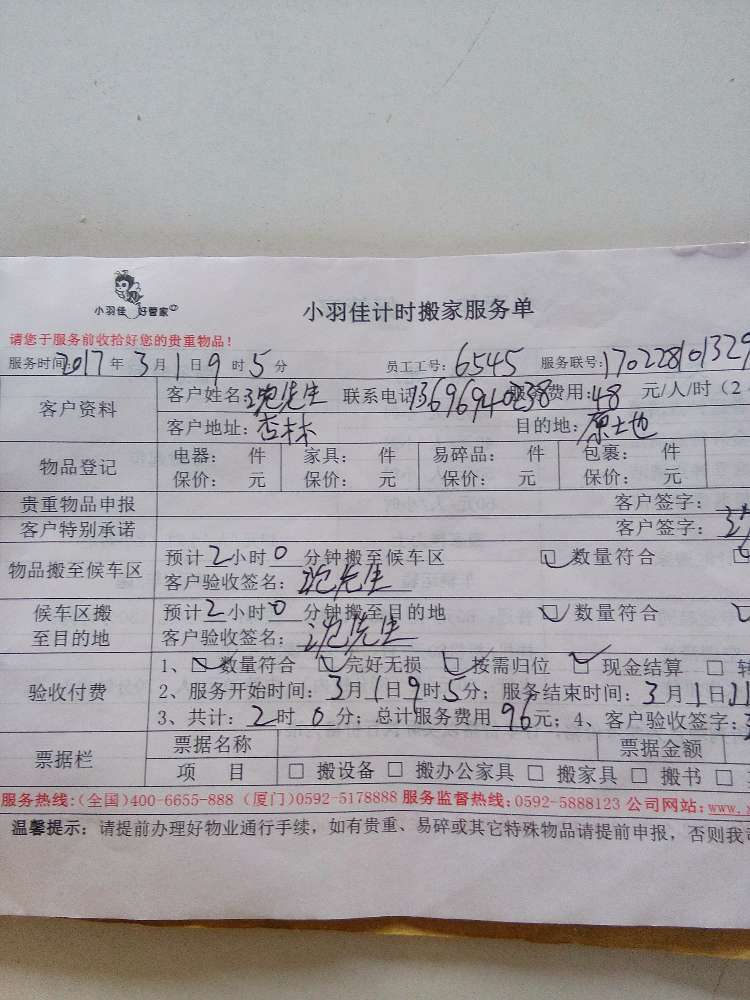 小羽佳 好管家
小羽佳计时搬家服务单
请您于服务前收拾好您的贵重物品！
服务时间：2017年3月1日9时5分 员工工号：6545 服务联号：170228101329
客户资料 客户姓名： 先生 联系电话：13696940238 服务费用：48 元/人/时（2
客户地址：杏林 目的地：原土地
物品登记 电器： 件 家具： 件 易碎品： 件 包裹： 件
保价： 元 保价： 元 保价： 元 保价： 元
贵重物品申报 客户签字：
客户特别承诺 客户签字：
物品搬至候车区 预计2小时0分钟搬至候车区 ☑ 数量符合
客户验收签名： 先生
候车区搬至目的地 预计2小时0分钟搬至目的地 ☑ 数量符合
客户验收签名： 先生
验收付费 1、☑数量符合 ☑完好无损 ☑按需归位 ☑ 现金结算 □
2、服务开始时间：3月1日9时5分；服务结束时间：3月1日11
3、共计：2时0分；总计服务费用96元；4、客户验收签字：
票据栏 票据名称 票据金额
项 目 □ 搬设备 □ 搬办公家具 □ 搬家具 □ 搬书 □
服务热线:(全国)400-6655-888 (厦门)0592-5178888 服务监督热线:0592-5888123 公司网站:www.
温馨提示：请提前办理好物业通行手续，如有贵重、易碎或其它特殊物品请提前申报，否则我司